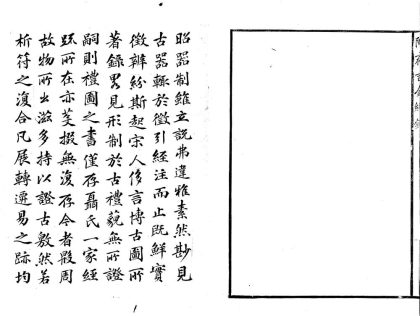 昭器制雖立說弗違雅素然尠見
古器輒於徵引經注而止既鮮實
徵辨紛斯起宋人侈言博古圖所
著錄畧見形制於古禮藐無所證
嗣則禮圖之書僅存聶氏一家經
疏所在亦芟掇無復存今者殷周
故物所出滋多持以證古數然若
析符之復合凡展轉遷易之跡均